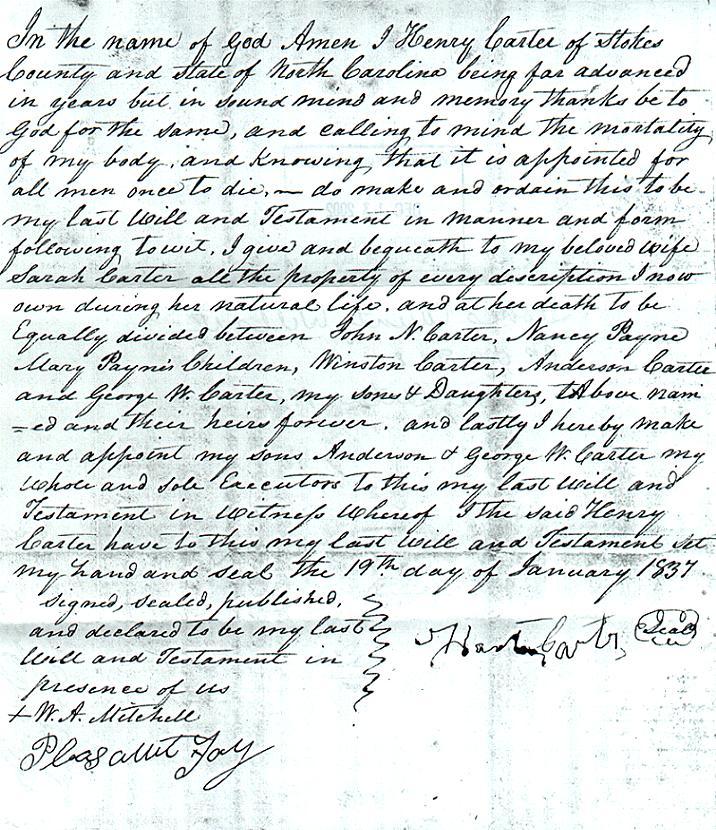 In the name of God Amen I Henry Carter of Stokes
County and state of North Carolina being far advanced
in years but in sound mind and memory thanks be to
God for the same, and calling to mind the mortality
of my body, and knowing that it is appointed for
all men once to die, — do make and ordain this to be
my last Will and Testament in manner and form
following to wit, I give and bequeath to my beloved wife
Sarah Carter all the property of every description I now
own during her natural life. and at her death to be
Equally divided between John N. Carter, Nancy Payne
Mary Payne's Children, Winston Carter, Anderson Carter
and George W. Carter, my sons & Daughters, Above nam
=ed and their heirs forever. and lastly I hereby make
and appoint my sons Anderson & George W. Carter my
whole and sole Executors to this my last Will and
Testament in Witness Whereof I the said Henry
Carter have to this my last Will and Testament set
my hand and seal the 19th day of January 1837
signed, sealed, published,
and declared to be my last
Will and Testament in
presence of us
Carter Seal
+ W. A. Mitchell